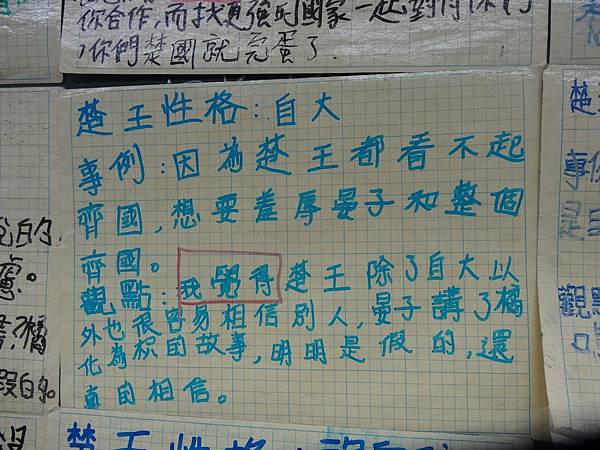 你合作,而找更強的國家一起對付你們
,你們楚國就完蛋了.
楚王性格:自大
事例:因為楚王都看不起
齊國,想要羞辱晏子和整個
齊國。
觀點:我覺得楚王除了自大以
外也很容易相信別人,晏子講了橘
化為枳的故事,明明是假的,還
真的相信。
的,
慮。
橘
假的。
楚
事
是
觀點
楚王性格: